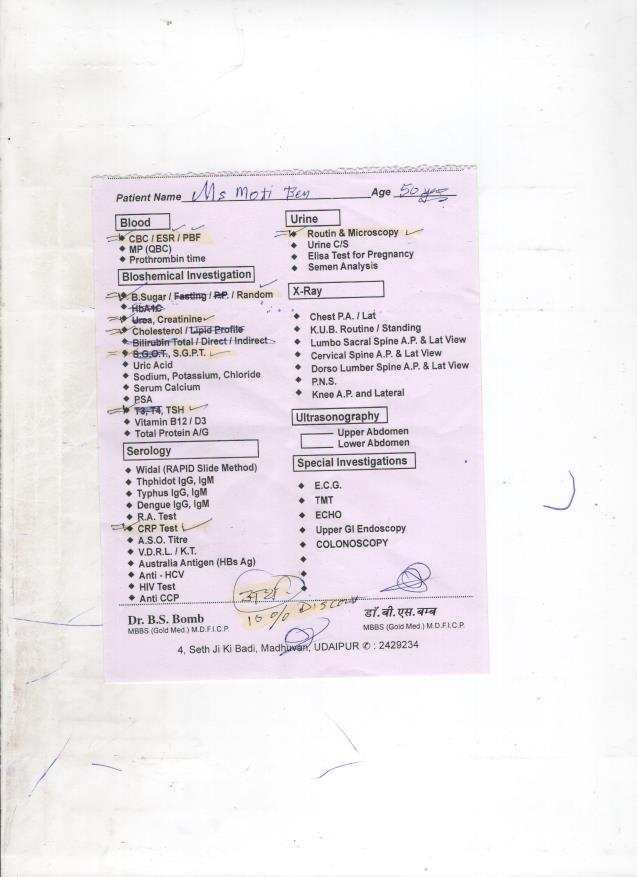 Patient Name Ms Moti Ben Age 50 year
Blood
CBC / ESR / PBF
MP (QBC)
Prothrombin time
Bioshemical Investigation
B.Sugar / Fasting / P.P. / Random
HbA1C
Urea, Creatinine
Cholesterol / Lipid Profile
Bilirubin Total / Direct / Indirect
S.G.O.T., S.G.P.T.
Uric Acid
Sodium, Potassium, Chloride
Serum Calcium
PSA
T3, T4, TSH
Vitamin B12 / D3
Total Protein A/G
Serology
Widal (RAPID Slide Method)
Thphidot IgG, IgM
Typhus IgG, IgM
Dengue IgG, IgM
R.A. Test
CRP Test
A.S.O. Titre
V.D.R.L. / K.T.
Australia Antigen (HBs Ag)
Anti - HCV
HIV Test
Anti CCP
Urine
Routin & Microscopy
Urine C/S
Elisa Test for Pregnancy
Semen Analysis
X-Ray
Chest P.A. / Lat
K.U.B. Routine / Standing
Lumbo Sacral Spine A.P. & Lat View
Cervical Spine A.P. & Lat View
Dorso Lumber Spine A.P. & Lat View
P.N.S.
Knee A.P. and Lateral
Ultrasonography
Upper Abdomen
Lower Abdomen
Special Investigations
E.C.G.
TMT
ECHO
Upper GI Endoscopy
COLONOSCOPY
Dr. B.S. Bomb
MBBS (Gold Med.) M.D.F.I.C.P.
डॉ. बी. एस. बम्ब
MBBS (Gold Med.) M.D.F.I.C.P.
4, Seth Ji Ki Badi, Madhuvan, UDAIPUR ✆ : 2429234